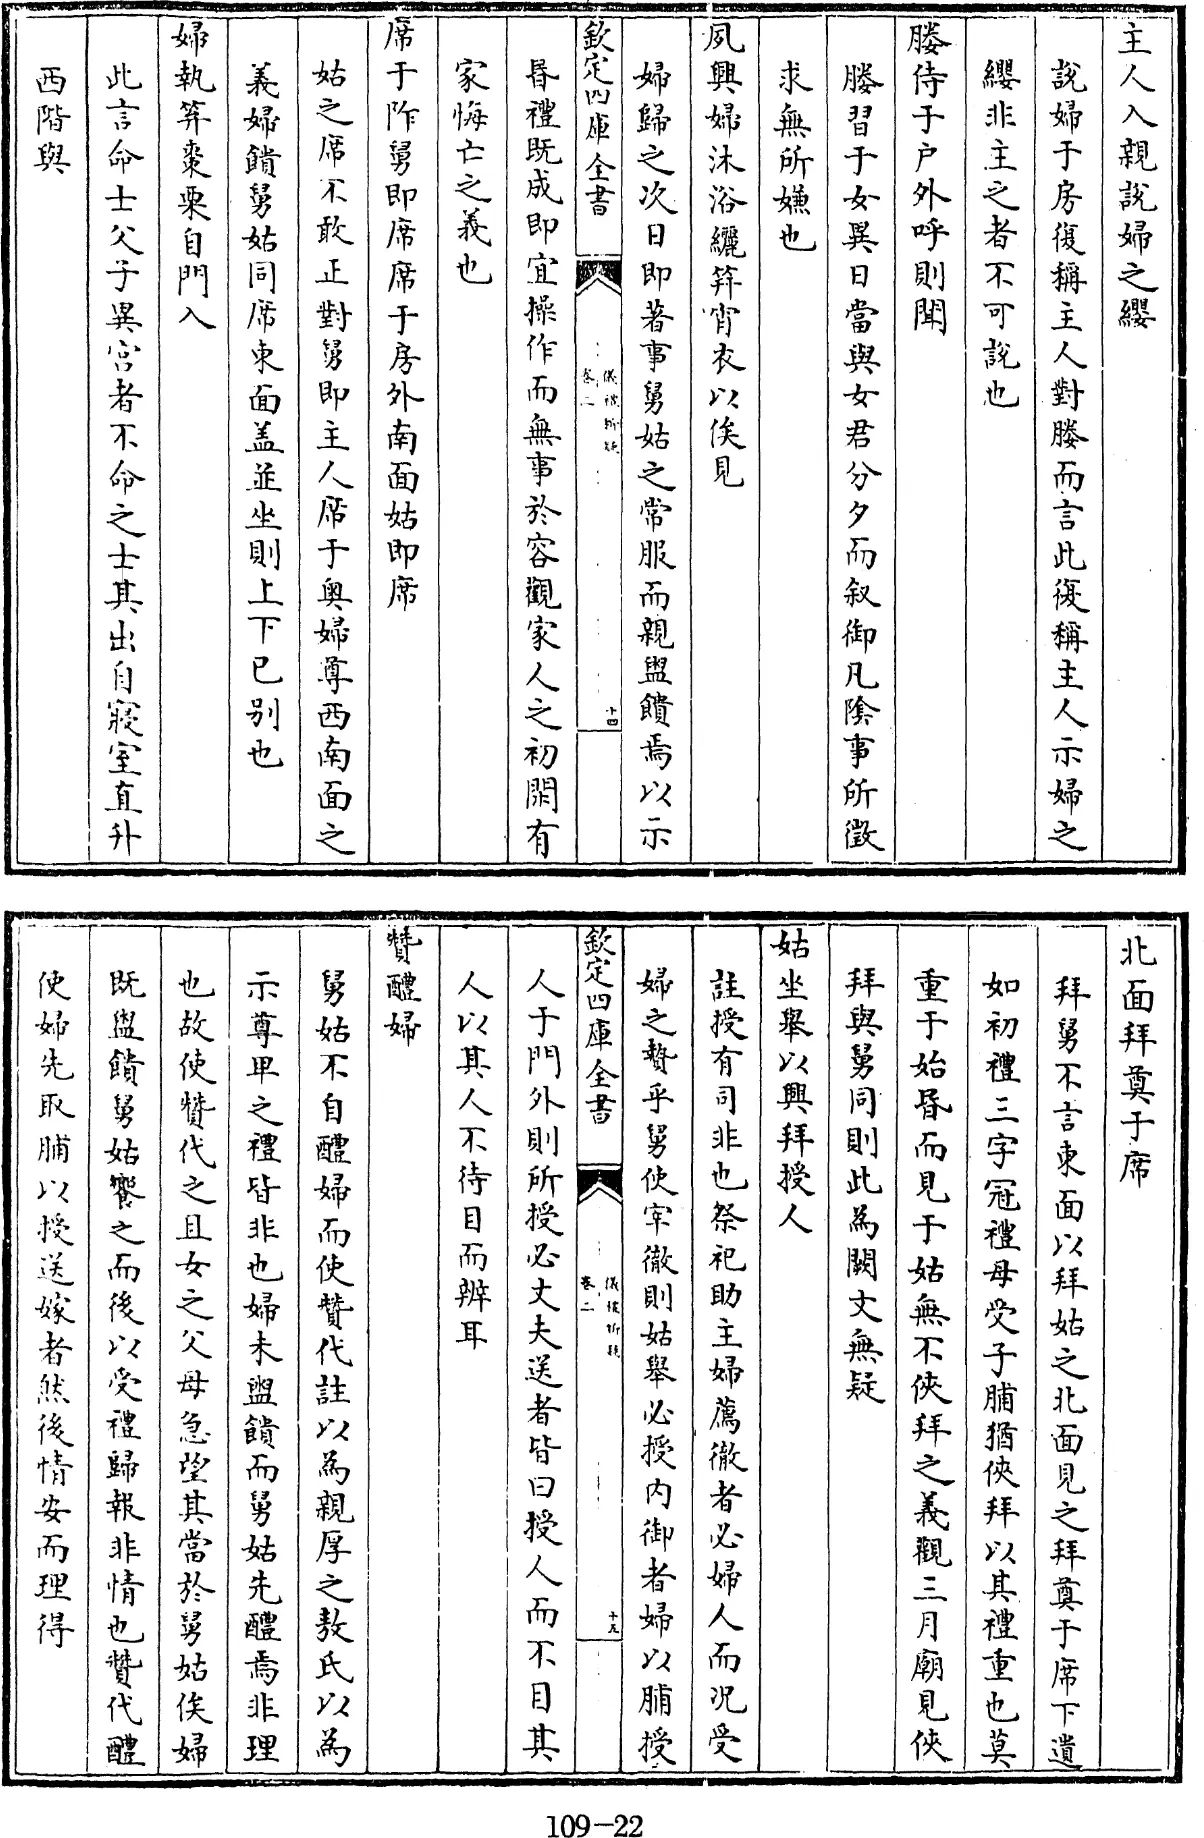 主人入親說婦之纓
說婦于房復稱主人對媵而言此復稱主人示婦之
纓非主之者不可說也
媵侍于户外呼則聞
媵習于女異日當與女君分夕而叙御凡陰事所徵
求無所嫌也
夙興婦沐浴纚筓宵衣以俟見
婦歸之次日即著事舅姑之常服而親盥饋焉以示
欽定四庫全書
儀禮析疑
卷二
十四
昏禮既成即宜操作而無事於容觀家人之初閑有
家悔亡之義也
席于阼舅即席席于房外南面姑即席
姑之席不敢正對舅即主人席于奥婦尊西南面之
義婦饋舅姑同席東面盖並坐則上下已别也
婦執笲棗栗自門入
此言命士父子異宫者不命之士其出自寢室直升
西階與
北面拜奠于席
拜舅不言東面以拜姑之北面見之拜奠于席下遺
如初禮三字冠禮母受子脯猶俠拜以其禮重也莫
重于始昏而見于姑無不俠拜之義觀三月廟見俠
拜與舅同則此為闕文無疑
姑坐舉以興拜授人
註授有司非也祭祀助主婦薦徹者必婦人而况受
婦之贄乎舅使宰徹則姑舉必授内御者婦以脯授
欽定四庫全書
儀禮析疑
卷二
十五
人于門外則所授必丈夫送者皆曰授人而不目其
人以其人不待目而辨耳
贊醴婦
舅姑不自醴婦而使贊代註以為親厚之敖氏以為
示尊卑之禮皆非也婦未盥饋而舅姑先醴焉非理
也故使贊代之且女之父母急望其當於舅姑俟婦
既盥饋舅姑饗之而後以受禮歸報非情也贊代醴
使婦先取脯以授送嫁者然後情安而理得
109-22